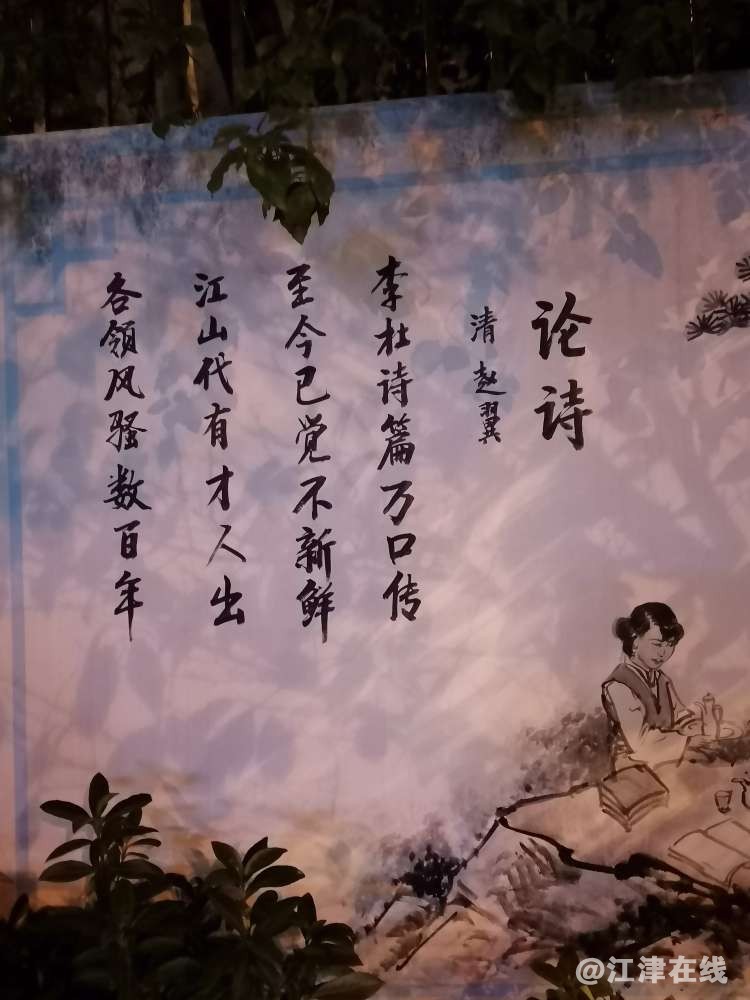 论诗
清 赵翼
李杜诗篇万口传
至今已觉不新鲜
江山代有才人出
各领风骚数百年
@江津在线